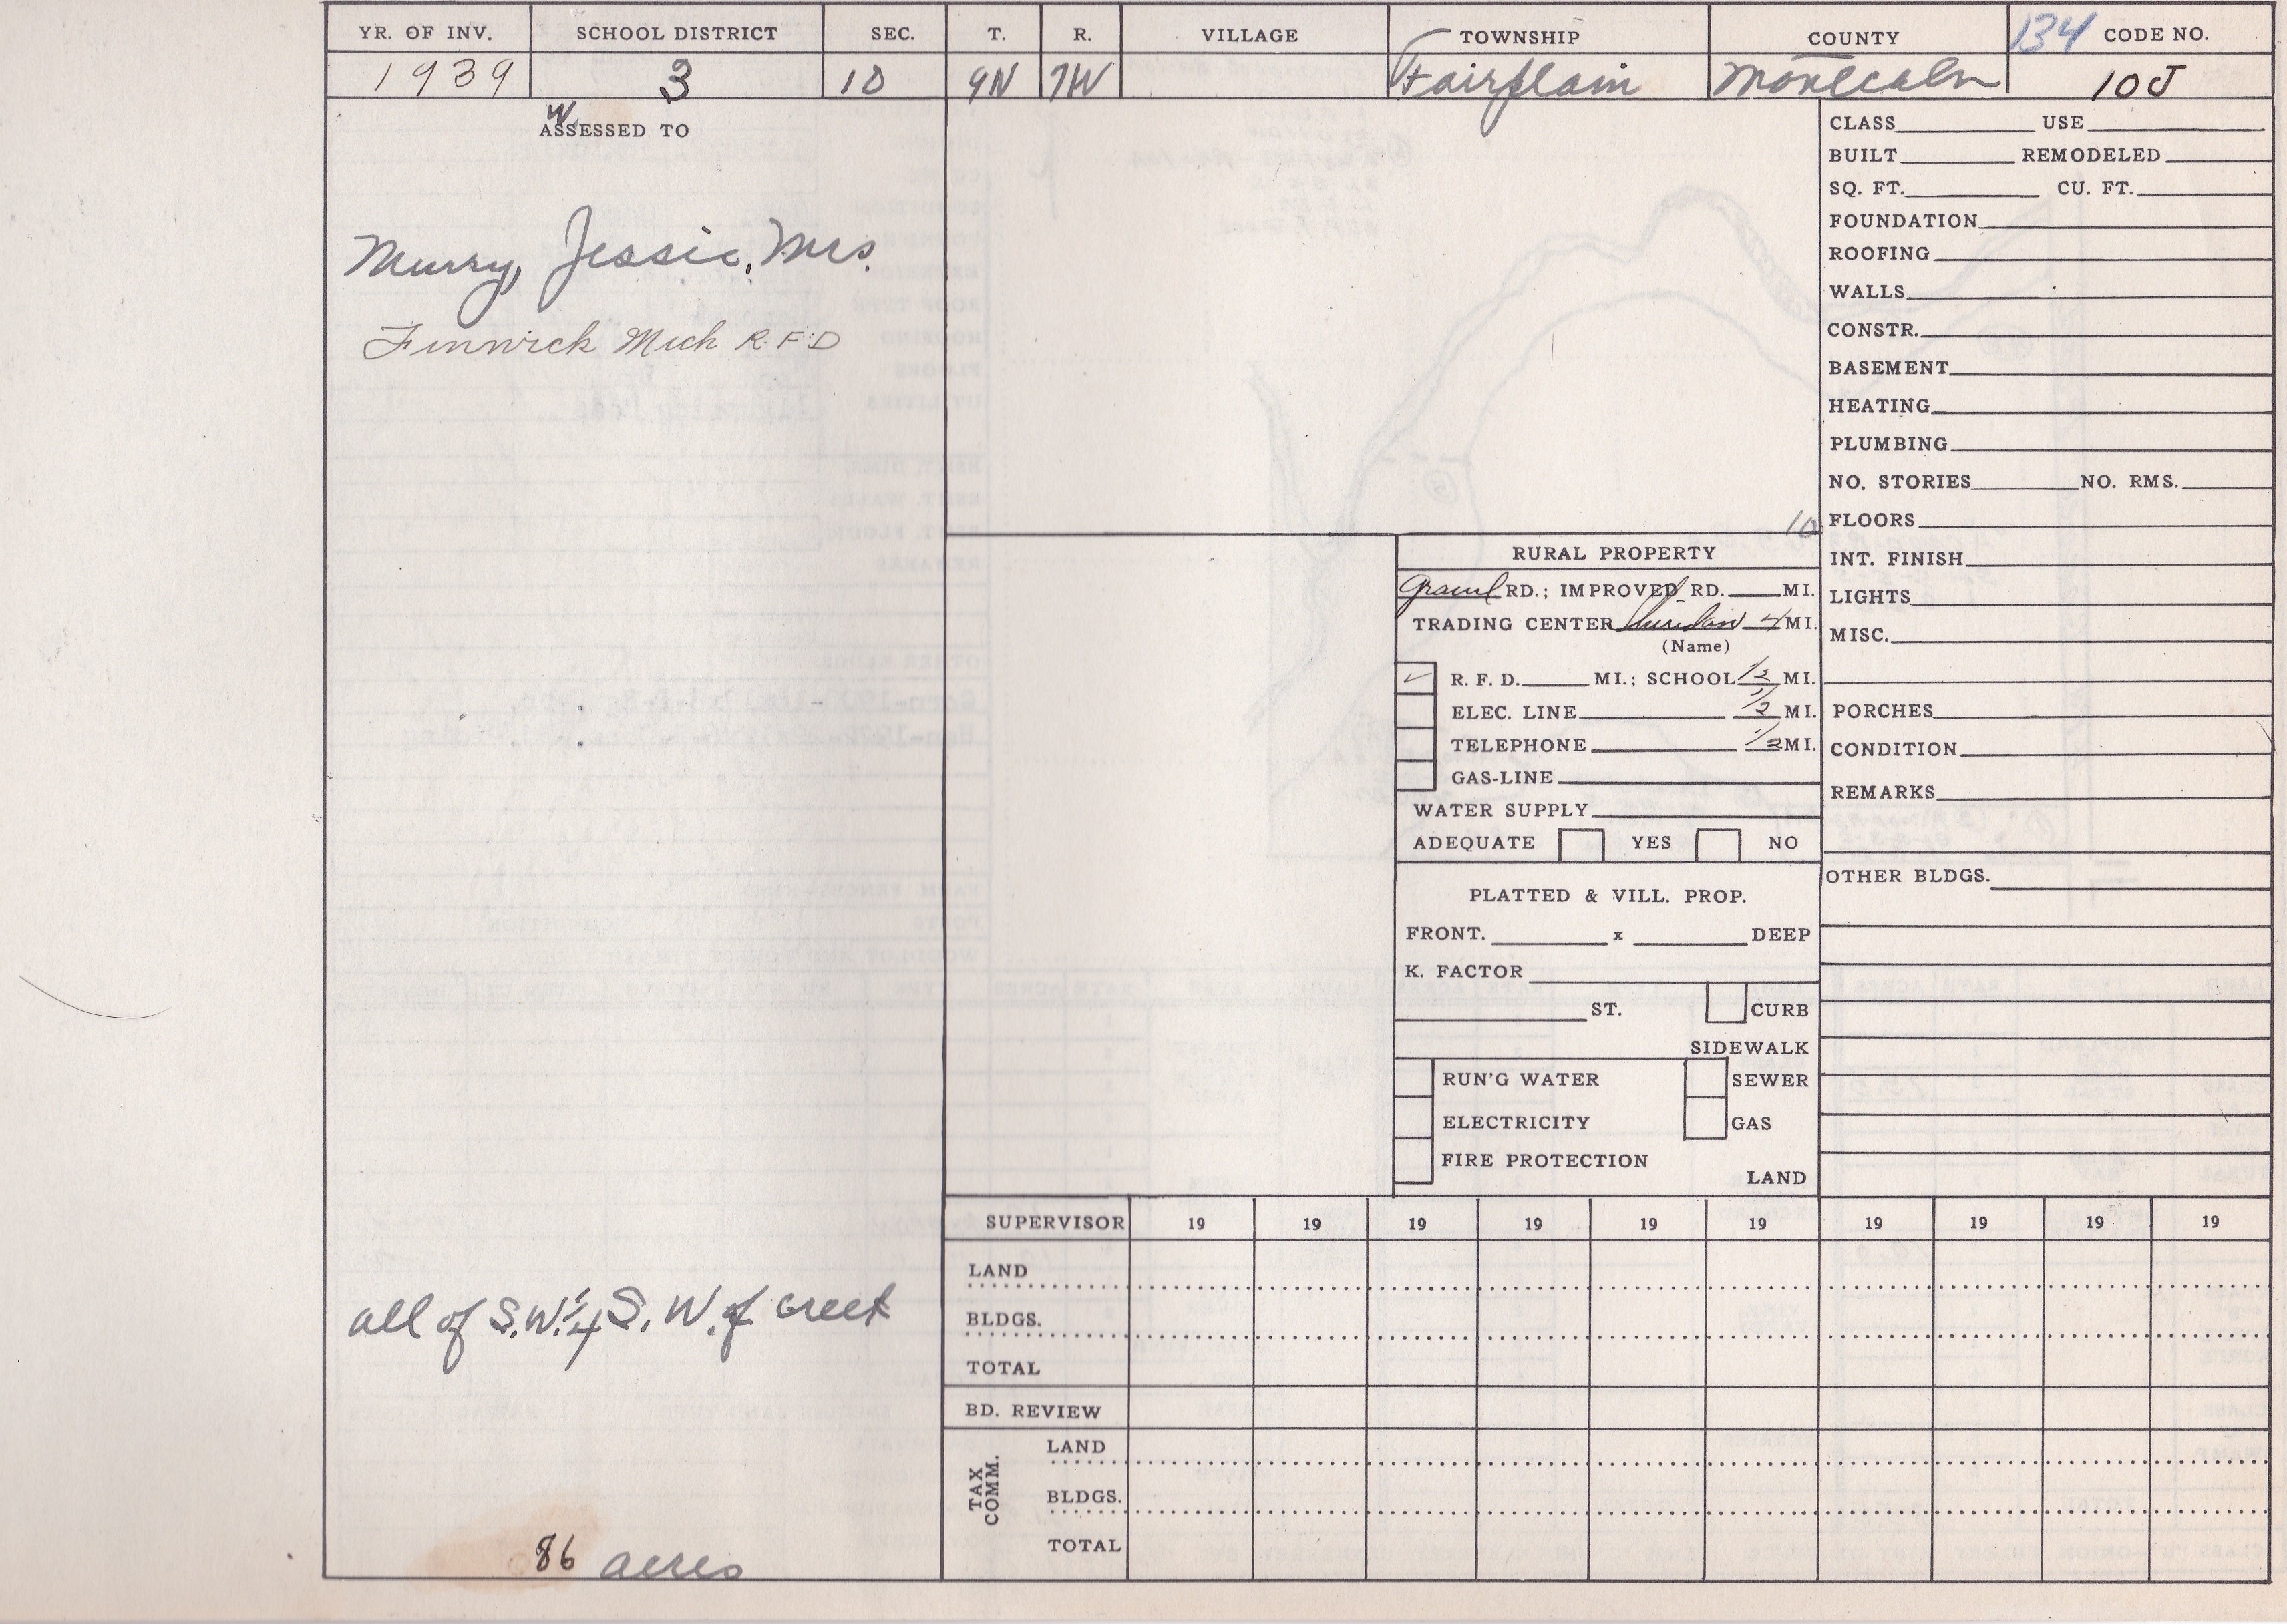 YR. OF INV. SCHOOL DISTRICT SEC. T. R. VILLAGE TOWNSHIP COUNTY 134 CODE NO.
1939 3 10 9N 7W Fairplain Montcalm 10J
W.
ASSESSED TO
Murry, Jessie, Mrs.
Fenwick Mich R.F.D
all of S.W. 1/4 S. W. of creek
86 acres
10
RURAL PROPERTY
Gravel RD.; IMPROVED RD. MI.
TRADING CENTER Sheridan 4 MI.
(Name)
✓ R. F. D. MI.; SCHOOL 1/2 MI.
ELEC. LINE 1/2 MI.
TELEPHONE 1/2 MI.
GAS-LINE
WATER SUPPLY
ADEQUATE YES NO
PLATTED & VILL. PROP.
FRONT. x DEEP
K. FACTOR
ST. CURB
SIDEWALK
RUN'G WATER SEWER
ELECTRICITY GAS
FIRE PROTECTION
LAND
CLASS USE
BUILT REMODELED
SQ. FT. CU. FT.
FOUNDATION
ROOFING
WALLS
CONSTR.
BASEMENT
HEATING
PLUMBING
NO. STORIES NO. RMS.
FLOORS
INT. FINISH
LIGHTS
MISC.
PORCHES
CONDITION
REMARKS
OTHER BLDGS.
SUPERVISOR 19 19 19 19 19 19 19 19 19 19
LAND
BLDGS.
TOTAL
BD. REVIEW
TAX COMM.
LAND
BLDGS.
TOTAL